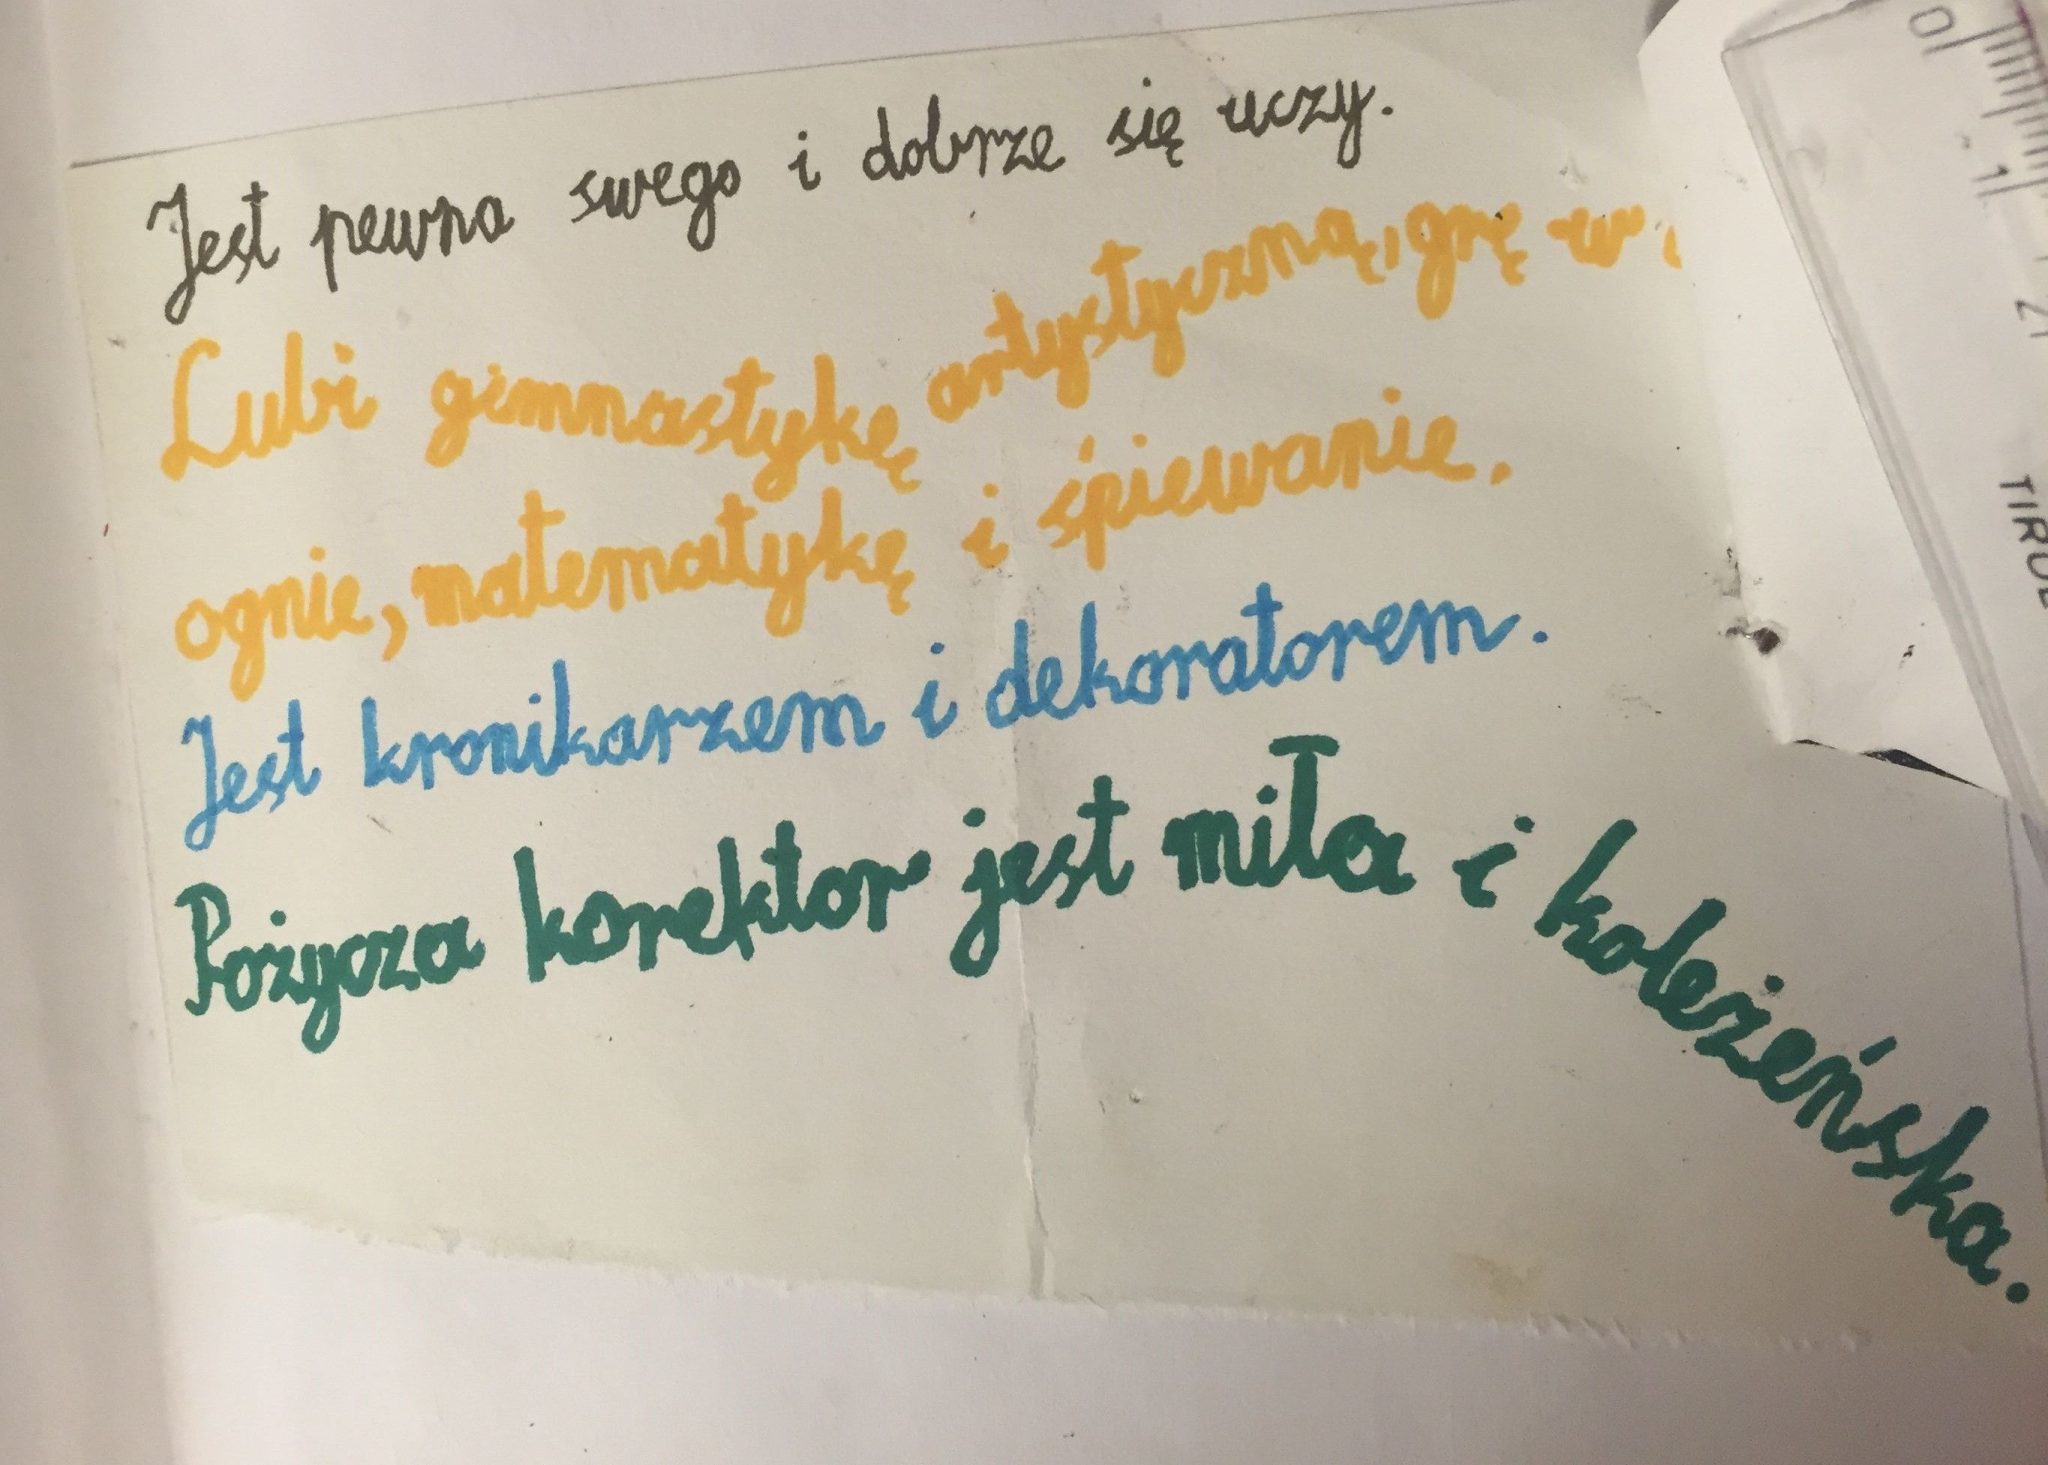 Jest pewna swego i dobrze się uczy.
Lubi gimnastykę artystyczną, grę w
ognie, matematykę i śpiewanie.
Jest kronikarzem i dekoratorem.
Pożycza korektor jest miła i koleżeńska.
0 1 2